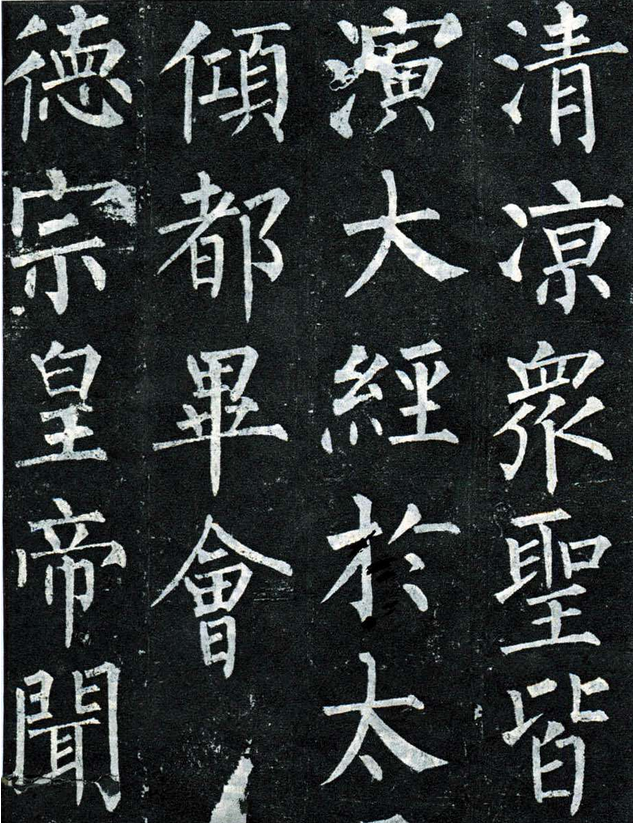 清涼眾聖皆
演大經於太
傾都畢會
德宗皇帝聞